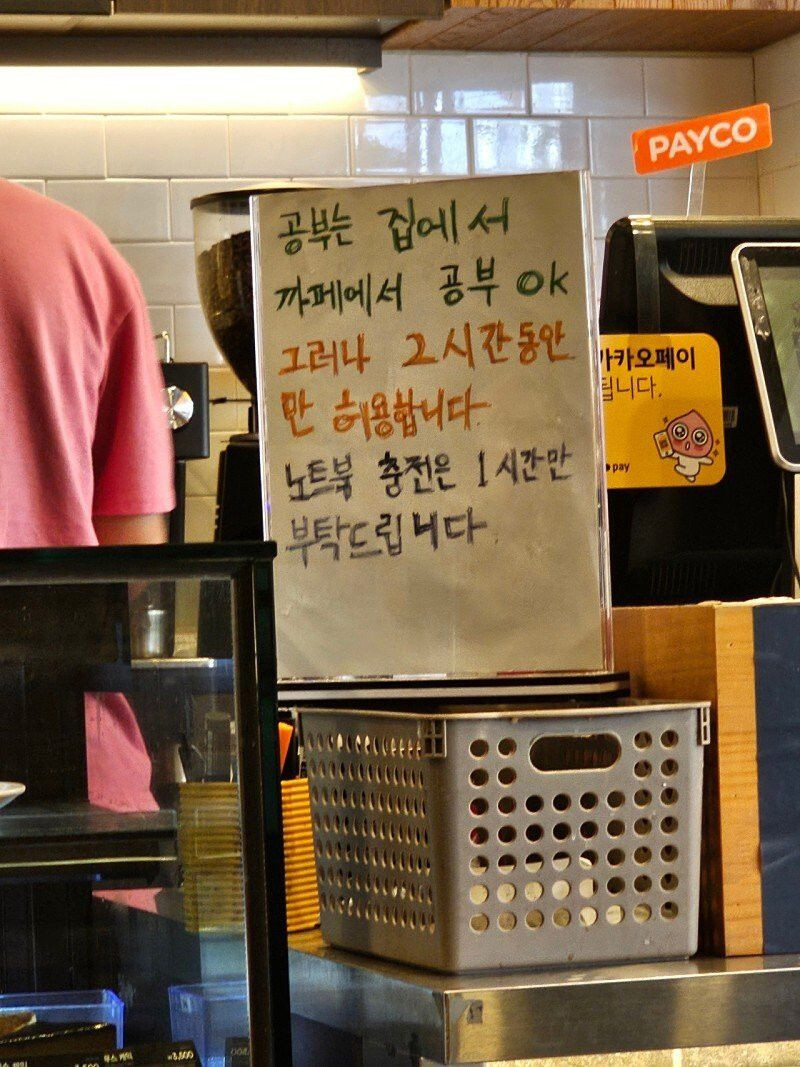 PAYCO
공부는 집에서
까페에서 공부 OK
그러나 2시간동안
만 허용합니다.
노트북 충전은 1시간만
부탁드립니다.
카카오페이
됩니다.
pay